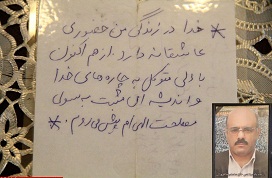 * خدا در زندگی من حضوری
عاشقانه دارد. از هم اکنون
با دلی متوکل به چاره های خدا
و اندیشه ای مثبت به سوی
مصلحت الهی ام پیش می روم. *